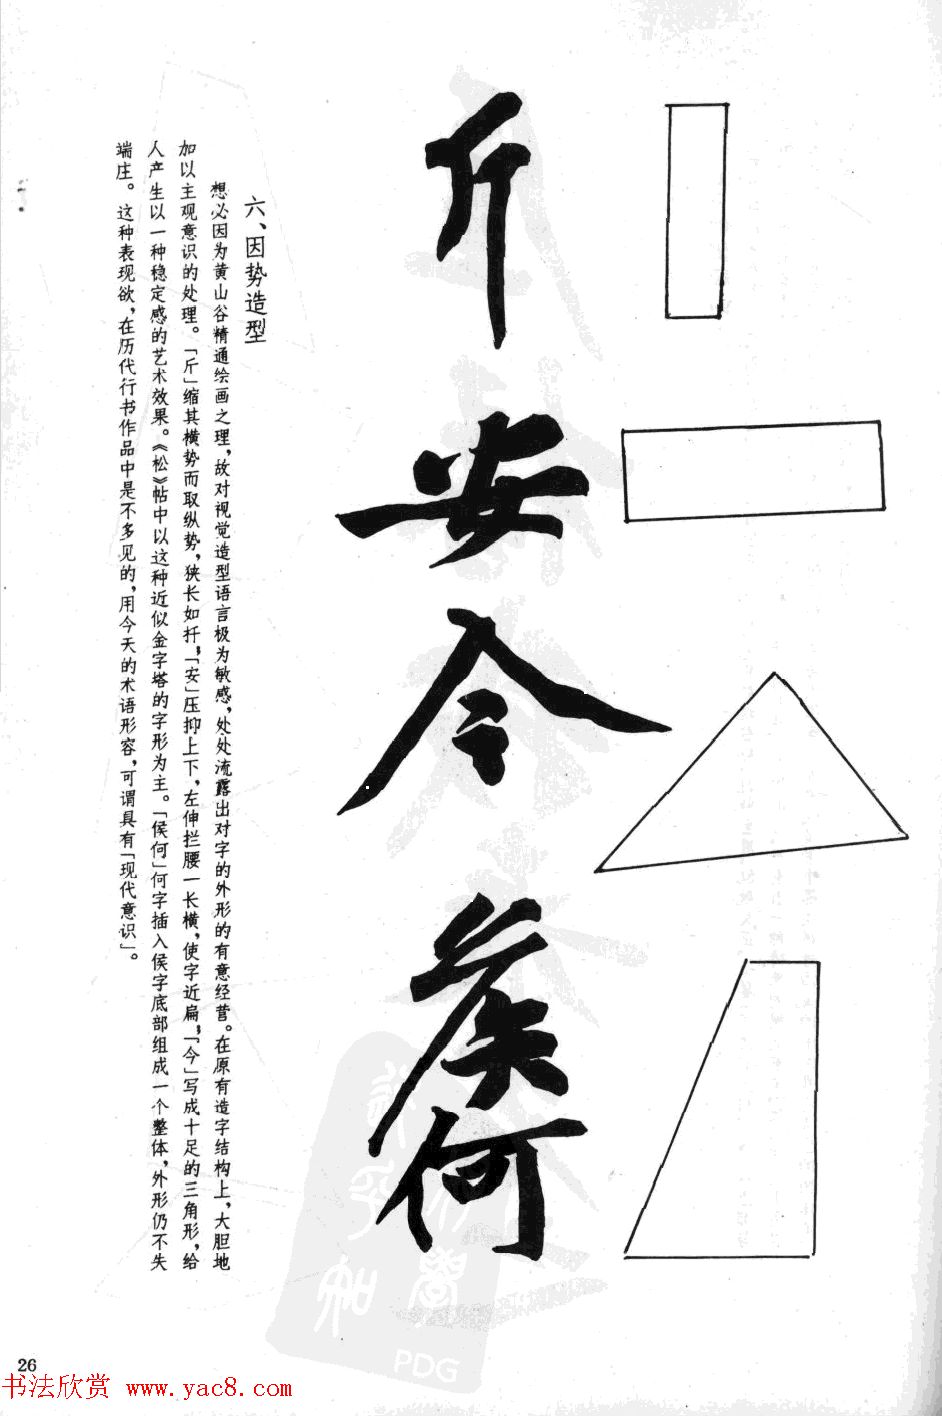 斤
安
今
侯何
六、因势造型
想必因为黄山谷精通绘画之理，故对视觉造型语言极为敏感，处处流露出对字的外形的有意经营。在原有造字结构上，大胆地
加以主观意识的处理。「斤」缩其横势而取纵势，狭长如扦；「安」压抑上下，左伸拦腰一长横，使字近扁；「今」写成十足的三角形，给
人产生以一种稳定感的艺术效果。《松》帖中以这种近似金字塔的字形为主。「侯何」何字插入侯字底部组成一个整体，外形仍不失
端庄。这种表现欲，在历代行书作品中是不多见的，用今天的术语形容，可谓具有「现代意识」。
26
书法欣赏 www.yac8.com
PDG